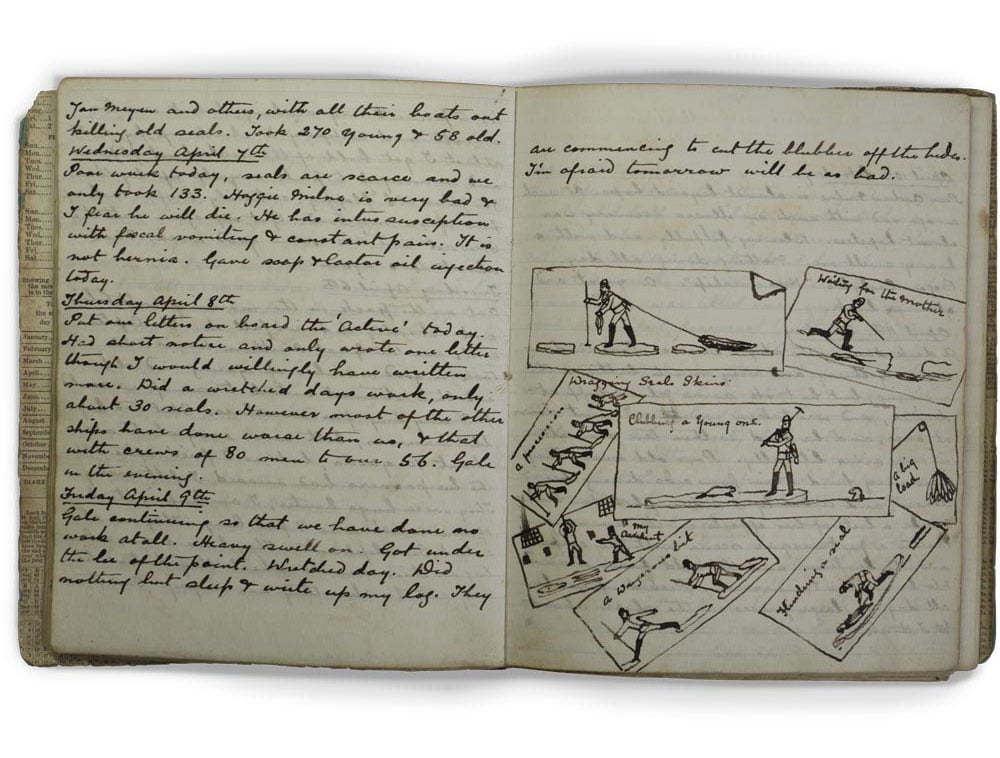 Jan Meyen and others, with all their boats out
killing old seals. Took 270 young & 58 old.
Wednesday April 7th
Poor work today, seals are scarce and we
only took 133. Haggie Milne is very bad &
I fear he will die. He has intus susception
with fœcal vomiting & constant pain. It is
not hernia. Gave soap & castor oil injection
today.
Thursday April 8th
Put our letters on board the 'Active' today.
Had short notice and only wrote one letter
though I would willingly have written
more. Did a wretched days work, only
about 30 seals. However most of the other
ships have done worse than us, & that
with crews of 80 men to our 56. Gale
in the evening.
Friday April 9th
Gale continuing so that we have done no
work at all. Heavy swell on. Got under
the lee of the point. Wretched day. Did
nothing but sleep & write up my log. They
are commencing to cut the blubber off the hides.
I'm afraid tomorrow will be as bad.
Waiting for the Mother
Dragging Seals Skins
a procession
Clubbing a Young one.
a big
load
my
accident
a Dangerous bit
a seal
January
February
March
April
May
June
July
August
DIARY